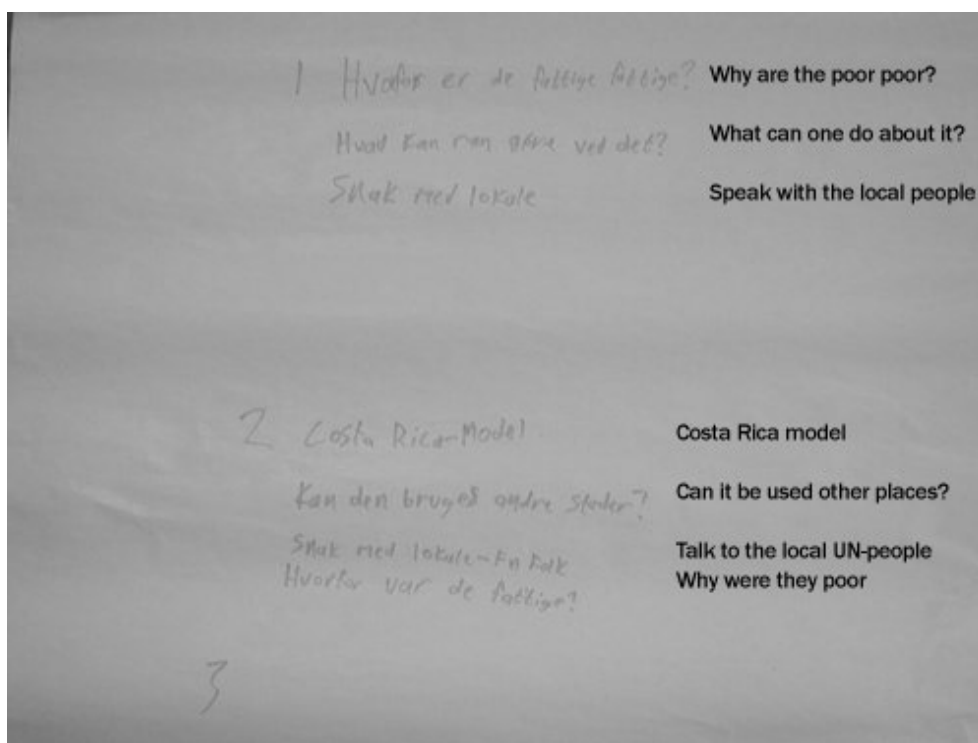 1 Hvorfor er de fattige fattige? Why are the poor poor?
Hvad kan man gøre ved det? What can one do about it?
Snak med lokale Speak with the local people
2 Costa Rica-Model Costa Rica model
Kan den bruges andre steder? Can it be used other places?
Snak med lokale-FN folk Talk to the local UN-people
Hvorfor var de fattige? Why were they poor
3